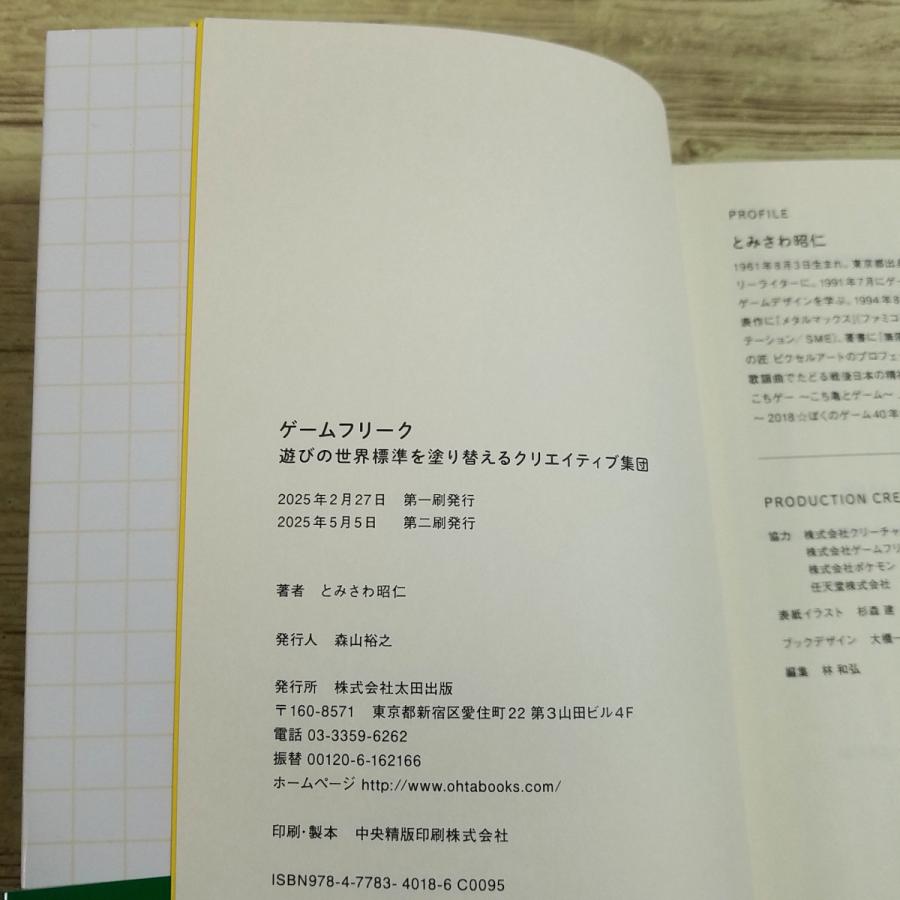 ゲームフリーク
遊びの世界標準を塗り替えるクリエイティブ集団
2025年2月27日 第一刷発行
2025年5月5日 第二刷発行
著者 とみさわ昭仁
発行人 森山裕之
発行所 株式会社太田出版
〒160-8571 東京都新宿区愛住町22 第3山田ビル4F
電話 03-3359-6262
振替 00120-6-162166
ホームページ http://www.ohtabooks.com/
印刷・製本 中央精版印刷株式会社
ISBN978-4-7783- 4018-6 C0095
PROFILE
とみさわ昭仁
1961年8月3日生まれ。東京都出
リーライターに。1991年7月にゲー
ゲームデザインを学ぶ。1994年8
表作に『メタルマックス』(ファミコ
テーション/SME)、著書に『
の匠 ピクセルアートのプロフェ
歌謡曲でたどる戦後日本の精
こちゲー ～こち亀とゲーム～
～2018☆ぼくのゲーム40年
PRODUCTION CRE
協力 株式会社クリーチャ
株式会社ゲームフリ
株式会社ポケモン
任天堂株式会社
表紙イラスト 杉森 建
ブックデザイン 大橋一
編集 林 和弘